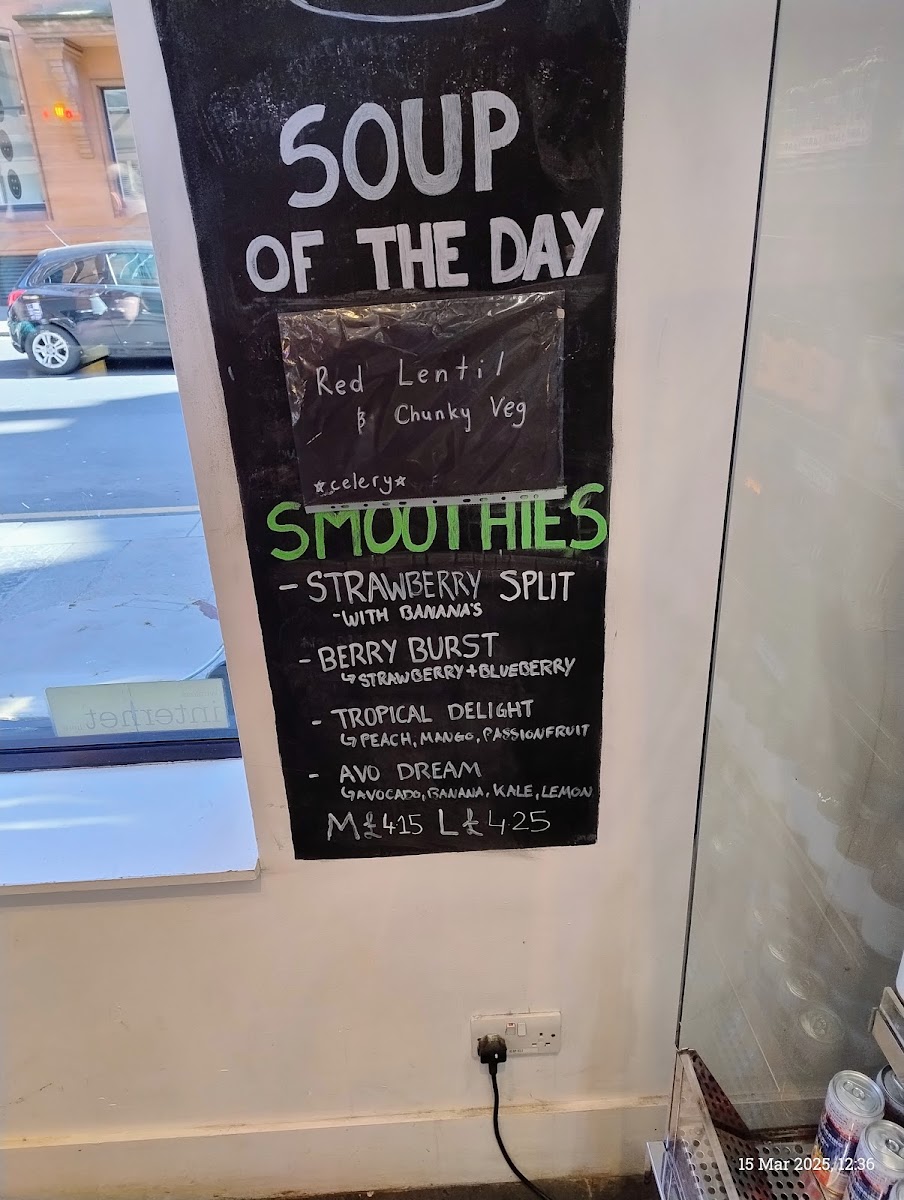 SOUP
OF THE DAY
Red Lentil
& Chunky Veg
☆celery☆
SMOOTHIES
- STRAWBERRY SPLIT
-WITH BANANA'S
- BERRY BURST
↳STRAWBERRY+BLUEBERRY
- TROPICAL DELIGHT
↳PEACH, MANGO, PASSIONFRUIT
- AVO DREAM
↳AVOCADO, BANANA, KALE, LEMON
M £415 L £425
internet
15 Mar 2025, 12:36